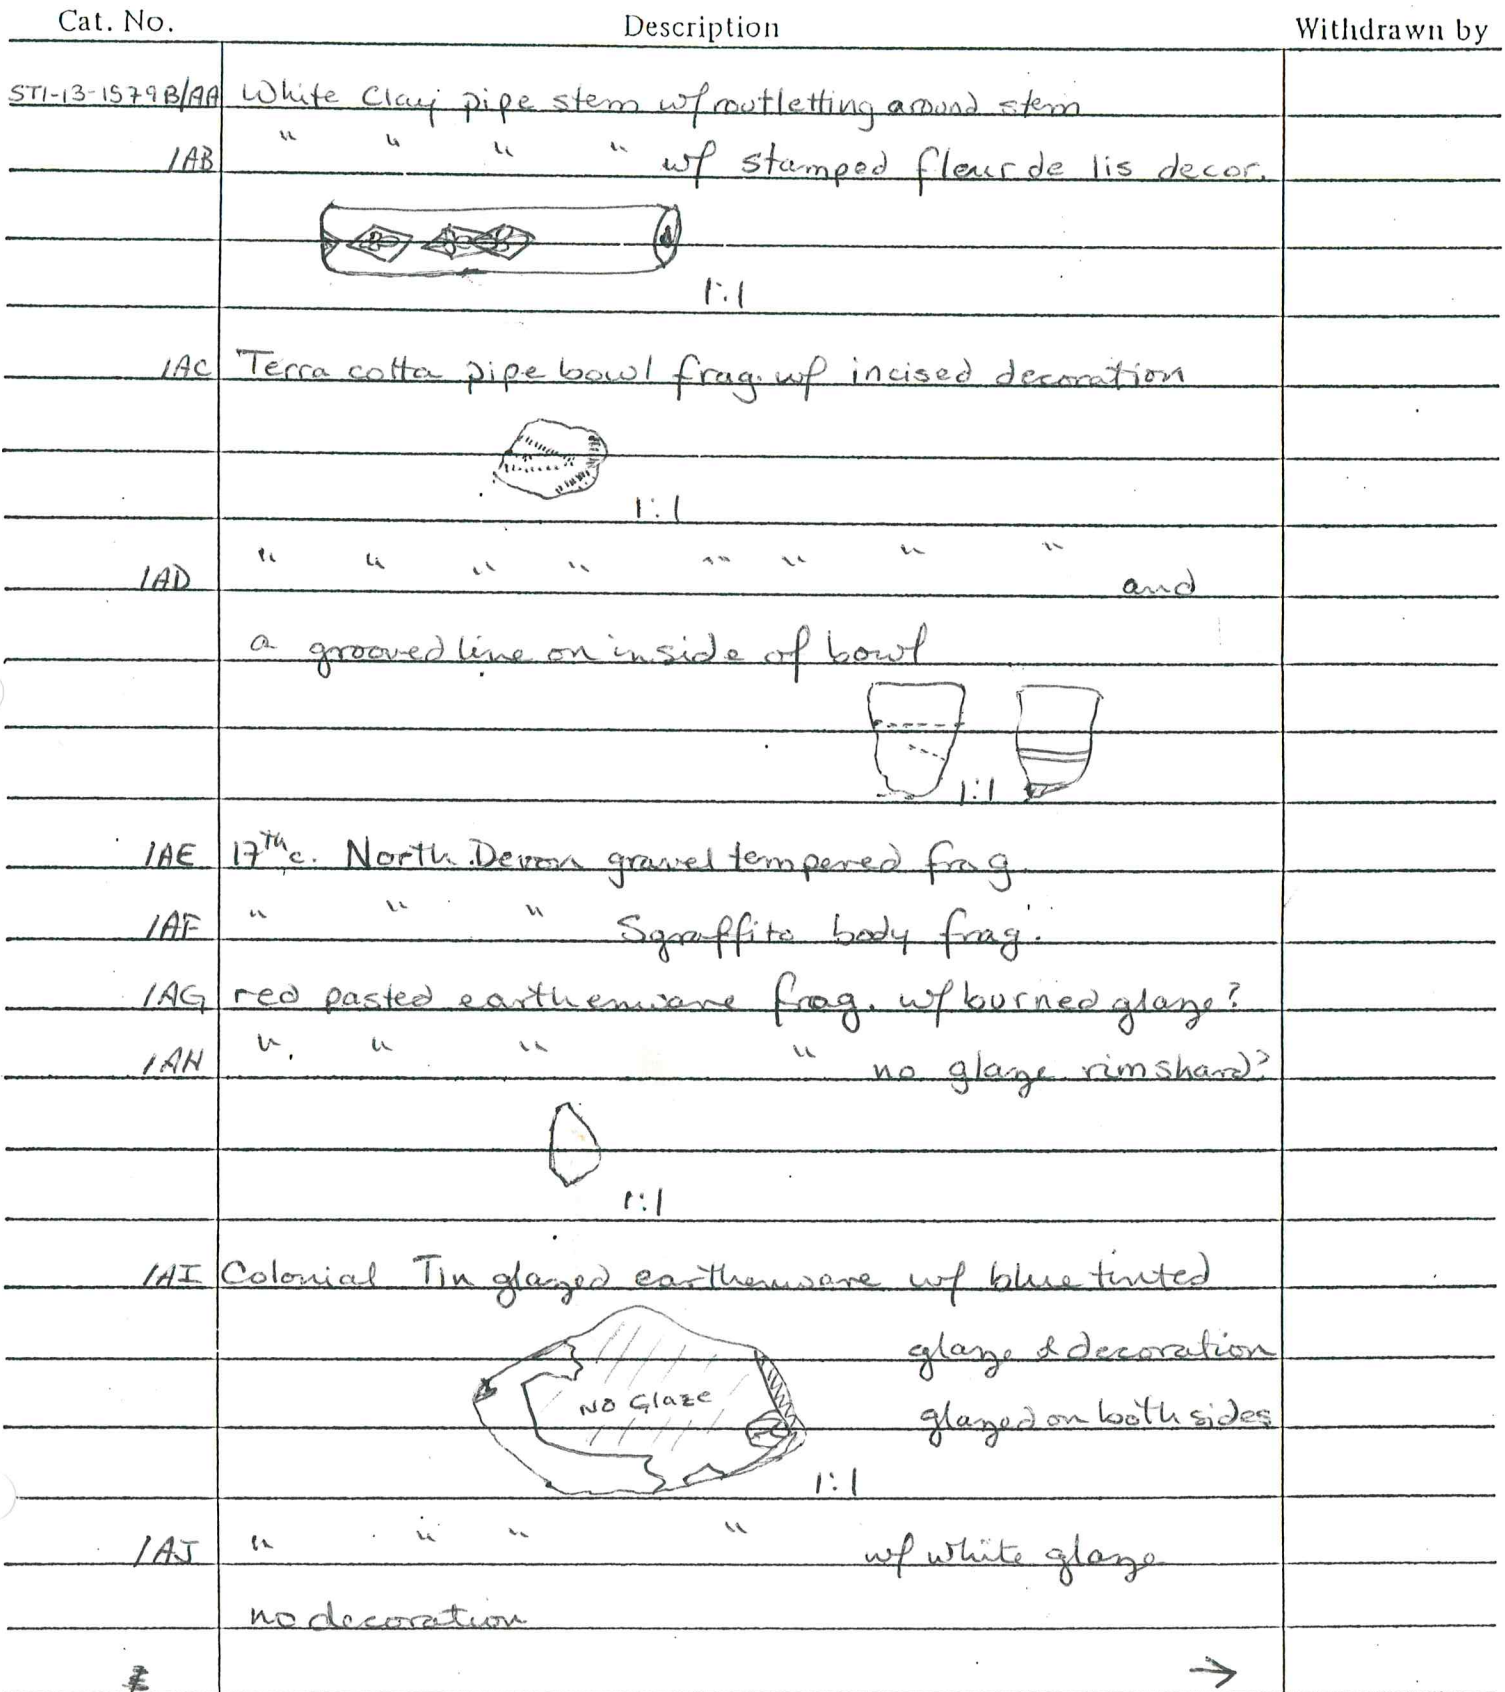 Cat. No. Description Withdrawn by
ST1-13-1579B/AA White Clay pipe stem w/ routletting around stem
/AB " " " " w/ stamped fleur de lis decor.
1:1
/AC Terra cotta pipe bowl frag. w/ incised decoration
1:1
/AD " " " " " " " " and
a grooved line on inside of bowl
1:1
/AE 17th c. North Devon gravel tempered frag
/AF " " " Sgraffito body frag.
/AG red pasted earthenware frag. w/ burned glaze?
/AH " " " " no glaze rim shard?
1:1
/AI Colonial Tin glazed earthenware w/ blue tinted
glaze & decoration
No Glaze
glazed on both sides
1:1
/AJ " " " " w/ white glaze
no decoration
→